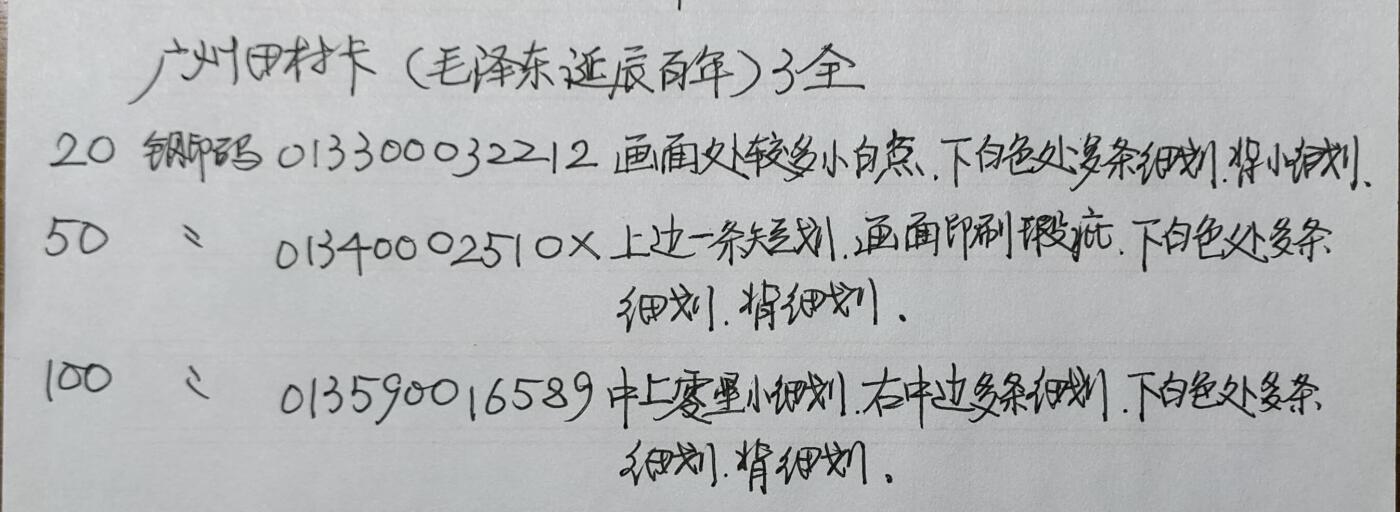 广州田村卡（毛泽东诞辰百年）3全
20 钢印码 013300032212 画面处较多小白点.下白色处多条细划.背小细划.
50 〃 01340002510X 上边一条短划.画面印刷瑕疵.下白色处多条
细划.背细划.
100 〃 013590016589 中上零星小细划.右中边多条细划.下白色处多条
细划.背细划.